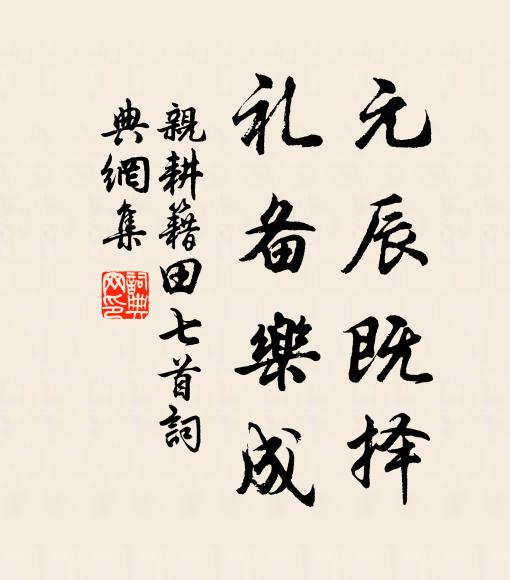 元辰既择
礼备樂成
親耕籍田七首詞
典網集
詞典网印